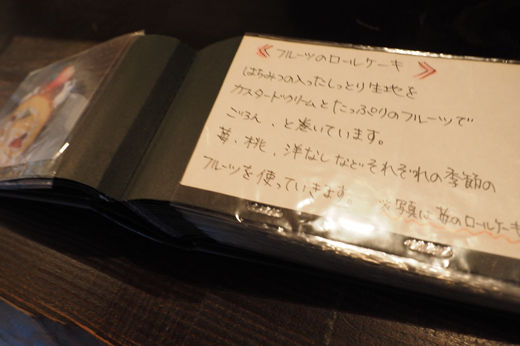 ≪フルーツのロールケーキ≫
はちみつの入ったしっとり生地を
カスタードクリームとたっぷりのフルーツで
ごろん、と巻いています。
苺、桃、洋なしなどそれぞれの季節の
フルーツを使っていきます。
※写真は苺のロールケーキ